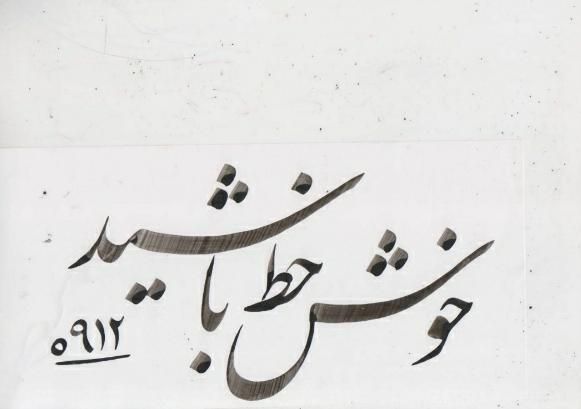 خوش خط باشید
۰۹۱۲